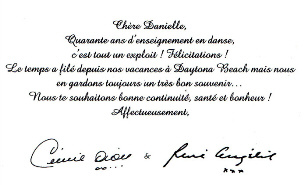 Chère Danielle,
Quarante ans d'enseignement en danse,
c'est tout un exploit ! Félicitations !
Le temps a filé depuis nos vacances à Daytona Beach mais nous
en gardons toujours un très bon souvenir...
Nous te souhaitons bonne continuité, santé et bonheur !
Affectueusement,
Céline Dion & René Angélil